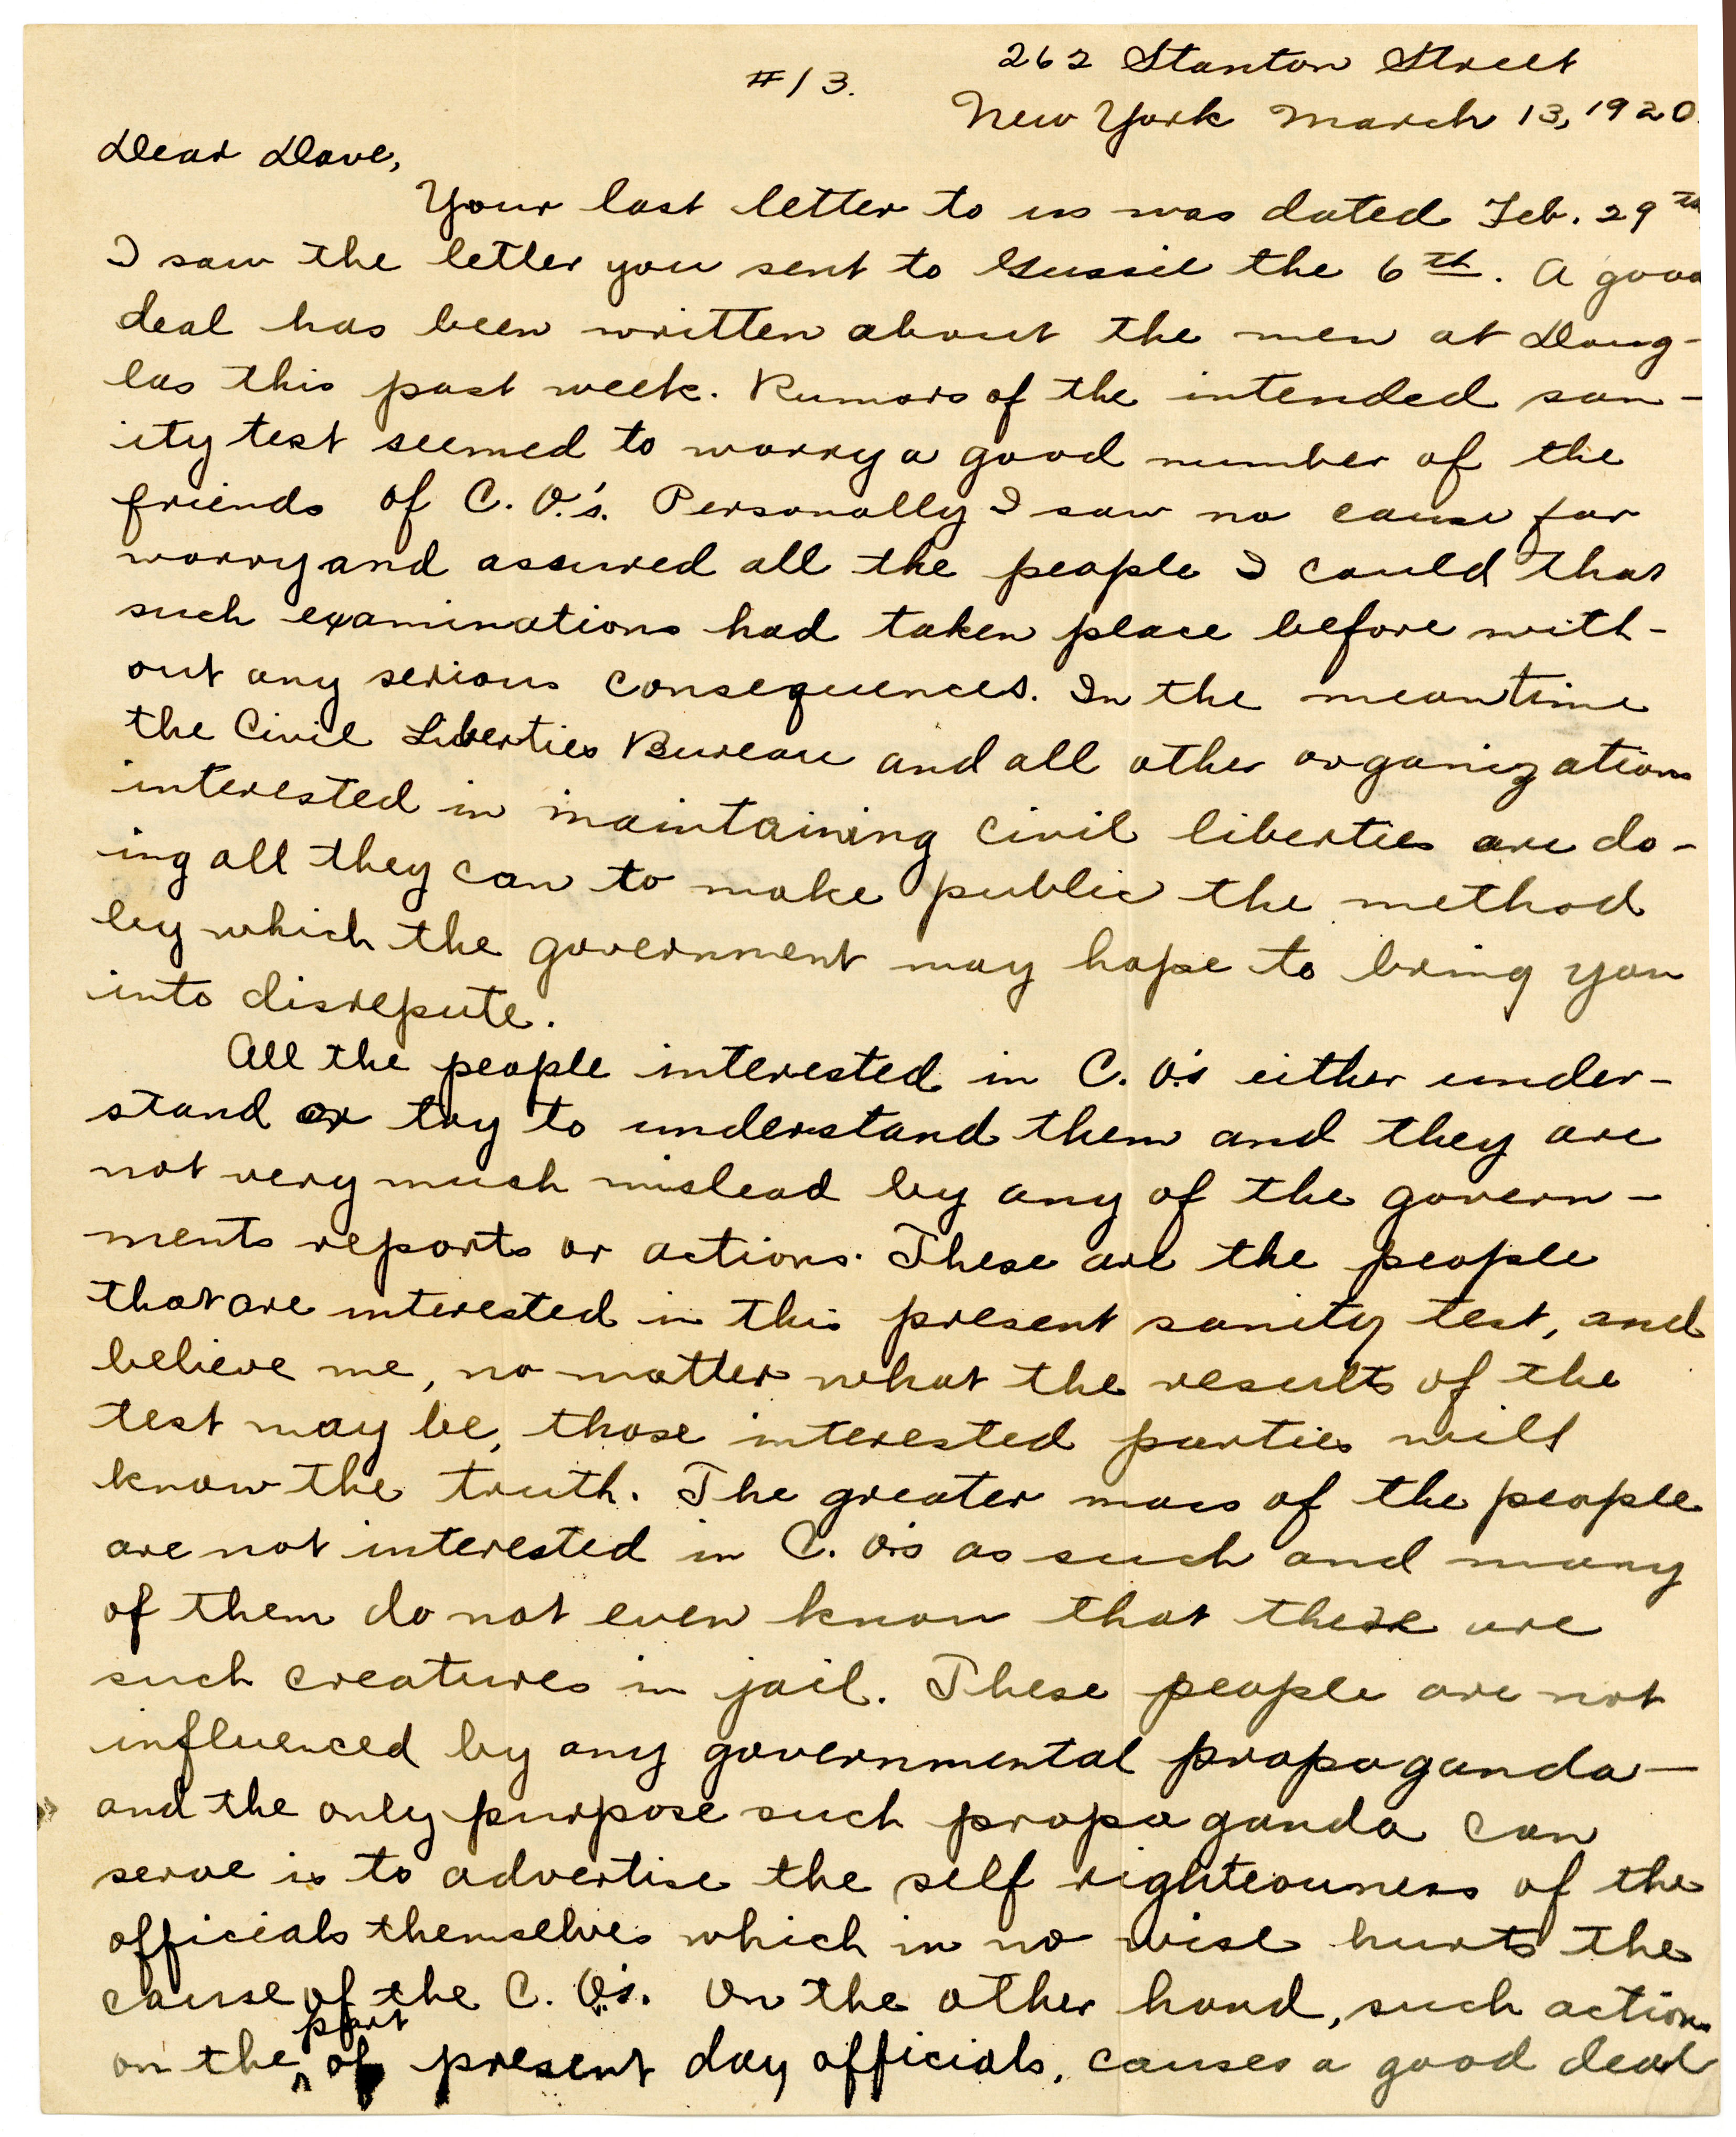 262 Stanton Street
#13.
New York March 13, 1920.
Dear Dave,
Your last letter to us was dated Feb. 29th
I saw the letter you sent to Gussie the 6th. A good
deal has been written about the men at Doug-
las this past week. Rumors of the intended san-
ity test seemed to worry a good number of the
friends of C. O.'s. Personally I saw no cause for
worry and assured all the people I could that
such examinations had taken place before with-
out any serious consequences. In the meantime
the Civil Liberties Bureau and all other organizations
interested in maintaining civil liberties are do-
ing all they can to make public the method
by which the government may hope to bring you
into disrepute.
All the people interested in C. O.'s either under-
stand or try to understand them and they are
not very much mislead by any of the govern-
ments reports or actions. These are the people
that are interested in this present sanity test, and
believe me, no matter what the results of the
test may be, those interested parties will
know the truth. The greater mass of the people
are not interested in C. O.'s as such and many
of them do not even know that there are
such creatures in jail. These people are not
influenced by any governmental propaganda—
and the only purpose such propaganda can
serve is to advertise the self righteouness of the
officials themselves which in no wise hurts the
cause of the C. O.'s. On the other hand, such actions
on the part of present day officials, causes a good deal